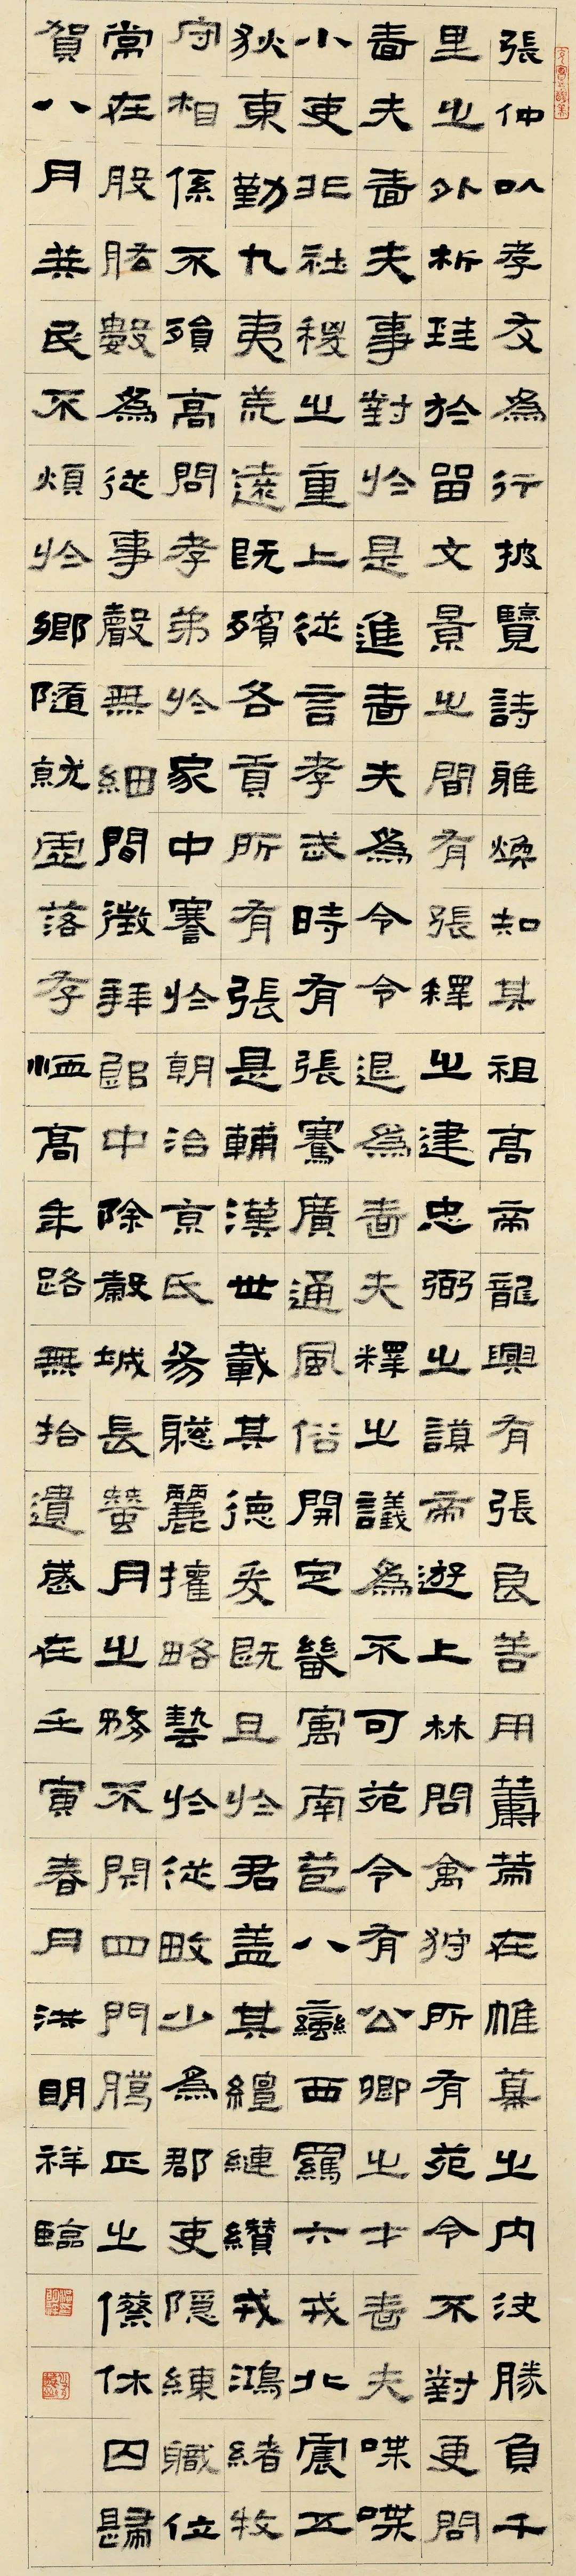 張仲以孝友爲行披覽詩雅煥知其祖高帝龍興有張良善用籌策在帷幕之内決勝負千
里之外析珪於留文景之間有張釋之建忠弼之謨帝遊上林問禽狩所有苑令不對更問
嗇夫嗇夫事對於是進嗇夫爲令令退爲嗇夫釋之議爲不可苑令有公卿之才嗇夫喋喋
小吏非社稷之重上從言孝武時有張騫廣通風俗開定畿寓南苞八蠻西羈六戎北震五
狄東勤九夷荒遠既殯各貢所有張是輔漢世載其德爰既且於君蓋其繵縺纘戎鴻緒牧
守相係不殞高問孝弟於家中謇於朝治京氏易聰麗權略藝於從畋少爲郡吏隱練職位
常在股肱數爲從事聲無細聞徵拜郎中除穀城長蠶月之務不閉四門臘正之僚休囚歸
賀八月筭民不煩於鄉隨就虛落存恤高年路無拾遺 歲在壬寅春月洪明祥臨